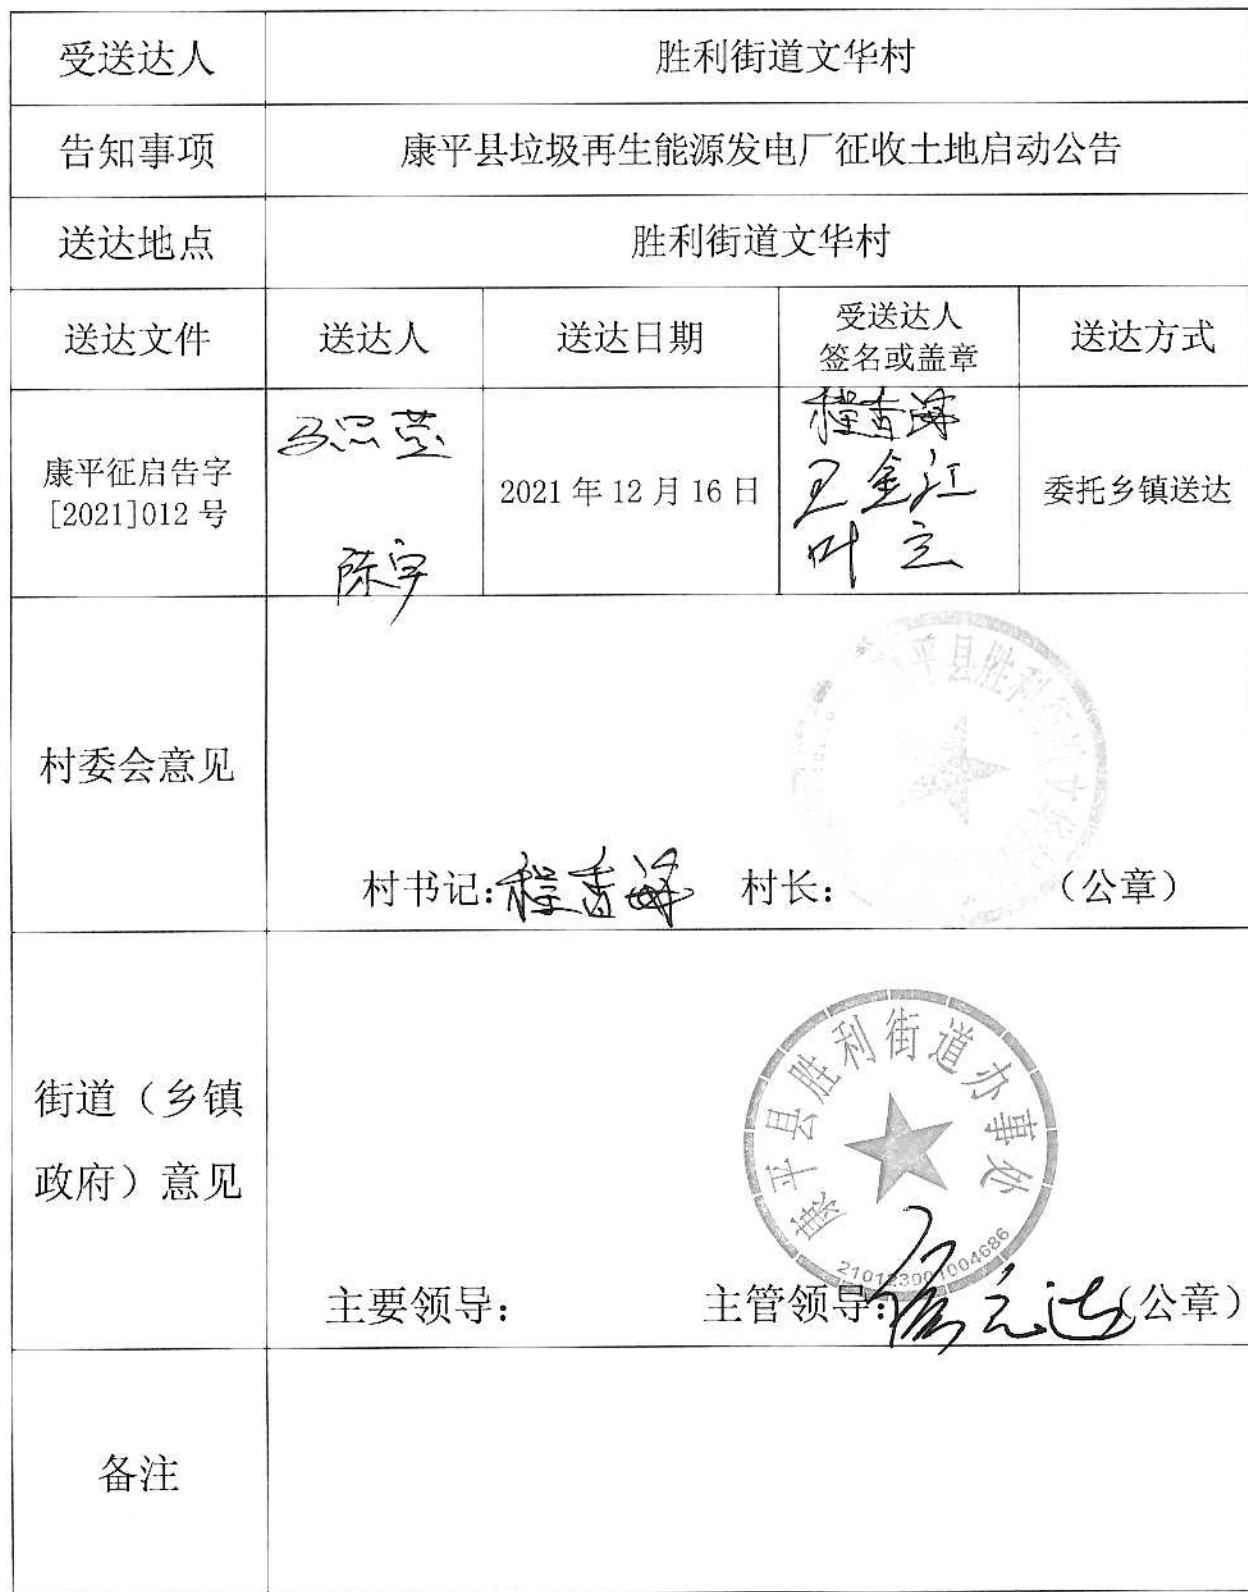 受送达人
胜利街道文华村
告知事项
康平县垃圾再生能源发电厂征收土地启动公告
送达地点
胜利街道文华村
送达文件
送达人
送达日期
受送达人
签名或盖章
送达方式
康平征启告字
[2021]012 号
陈宇
2021 年 12 月 16 日
王金江
叶立
委托乡镇送达
村委会意见
平县胜利街道文华
村书记：
村长：
（公章）
街道（乡镇
政府）意见
康平县胜利街道办事处
210123001004686
主要领导：
主管领导：
（公章）
备注